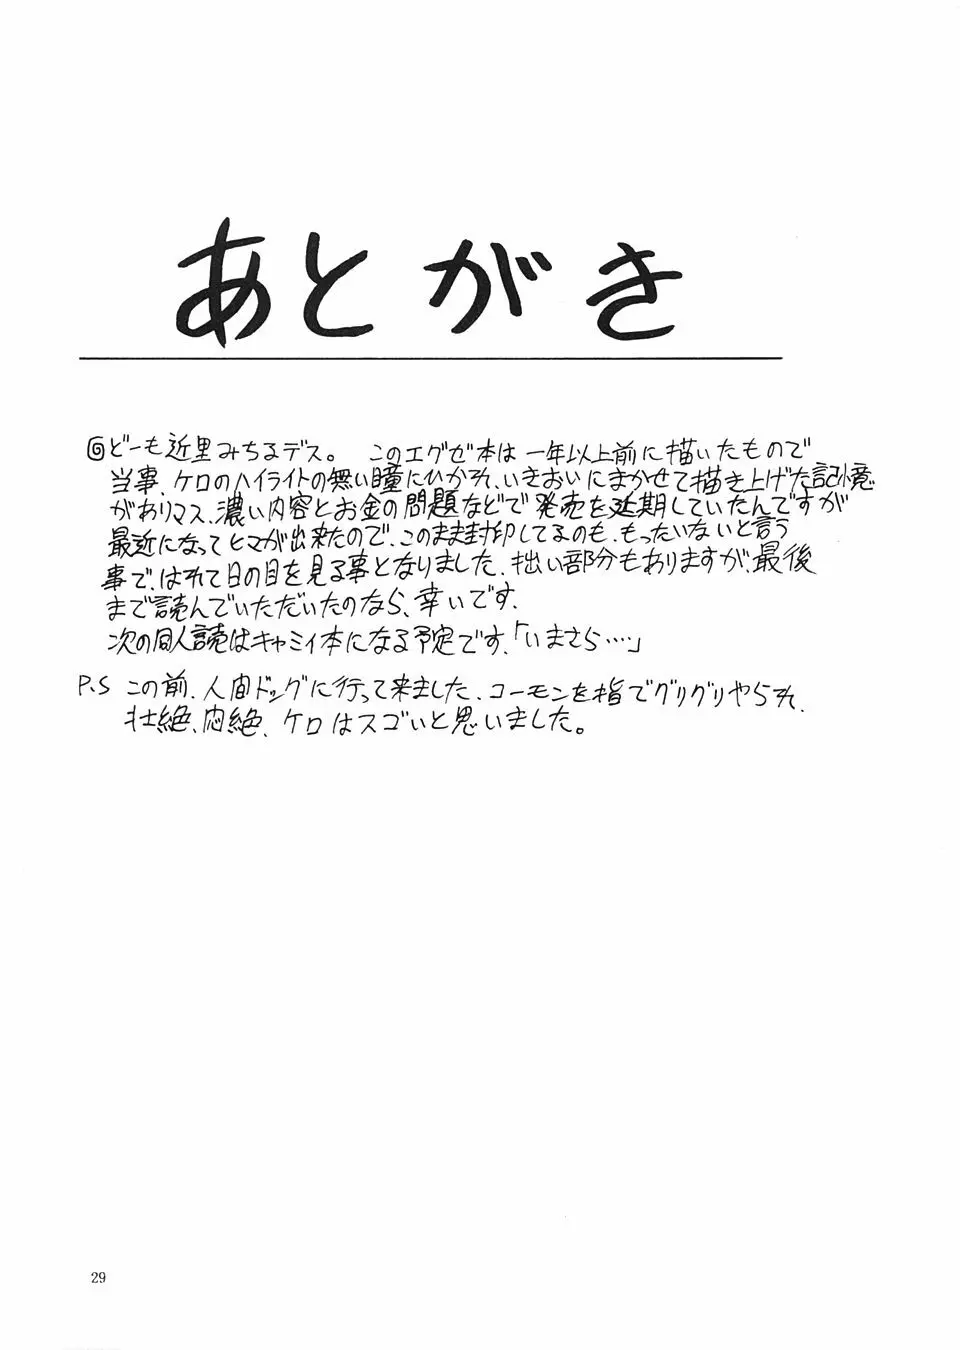 あとがき
◎どーも近里みちるデス。 このエグゼ本は一年以上前に描いたもので
当事、ケロのハイライトの無い瞳にひかれ、いきおいにまかせて描き上げた記憶
がありマス、濃い内容とお金の問題などで発売を延期していたんですが
最近になってヒマが出来たので、このまま封印してるのも、もったいないと言う
事で、はれて日の目を見る事となりました、拙い部分もありますが、最後
まで読んでいただいたのなら、幸いです、
次の同人読はキャミィ本になる予定です、「いまさら…」
P.S この前、人間ドッグに行って来ました、コーモンを指でグリグリやられ、
壮絶、悶絶、ケロはスゴいと思いました。
29